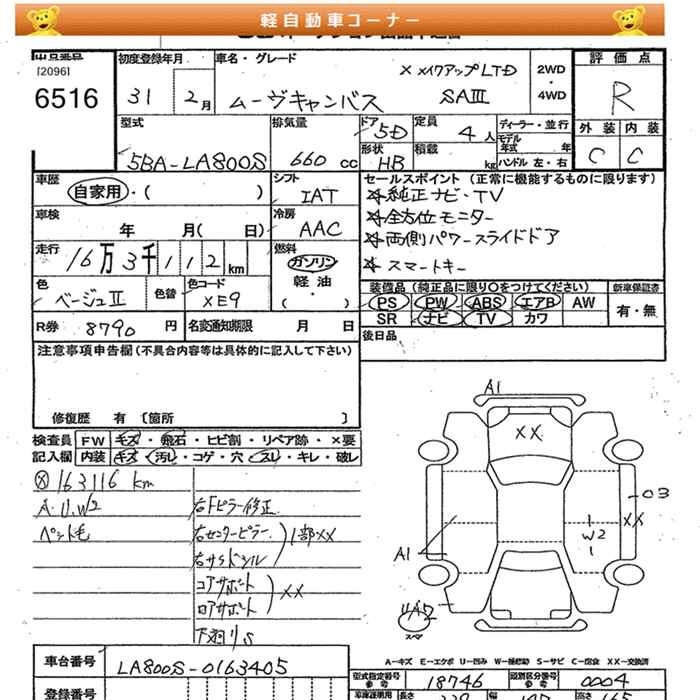 軽自動車コーナー
出品番号
[2096]
6516
初度登録年月
31 2月
車名・グレード
×メイクアップLTD
ムーヴキャンバス SAⅢ
2WD
・
4WD
評価点
R
外装 内装
C C
型式
5BA-LA800S
排気量
660 cc
ドア
5D
形状
HB
定員
4人
積載
kg
ディーラー・並行
モデル
年式 年
ハンドル 左・右
車歴
自家用・( )
シフト
IAT
車検
年 月( 日)
冷房
AAC
走行
16万3千112km
燃料
ガソリン
軽油
・
( )
色
ベージュⅡ
色替
色コード
XE9
R券 8790 円
名変通知期限 月 日
セールスポイント(正常に機能するものに限ります)
純正ナビ・TV
全方位モニター
両側パワースライドドア
スマートキー
装備品(純正品に限り○をつけてください)
PS PW ABS エアB AW
SR ナビ TV カワ
新車保証書
有・無
後日品
注意事項申告欄(不具合内容等は具体的に記入して下さい)
修復歴 有 〔箇所 〕
検査員
記入欄
FW キズ・飛石・ヒビ割・リペア跡・×要
内装 キズ・汚レ・コゲ・穴・スレ・キレ・破レ
163116 km
A.U.W2
ペット毛
右Fピラー修正
右センターピラー
右サイドシル
1部XX
コアサポート
ロアサポート
XX
下廻りS
A1
XX
03
XX
W2
A1
A2
スペア
A-キズ E-エクボ U-凹み W-補修跡 S-サビ C-腐食 XX-交換済
車台番号
LA800S-0163405
登録番号
型式指定番号
参考
18746
類別区分番号
参考
0004
車庫証明用
長さ
幅
高さ